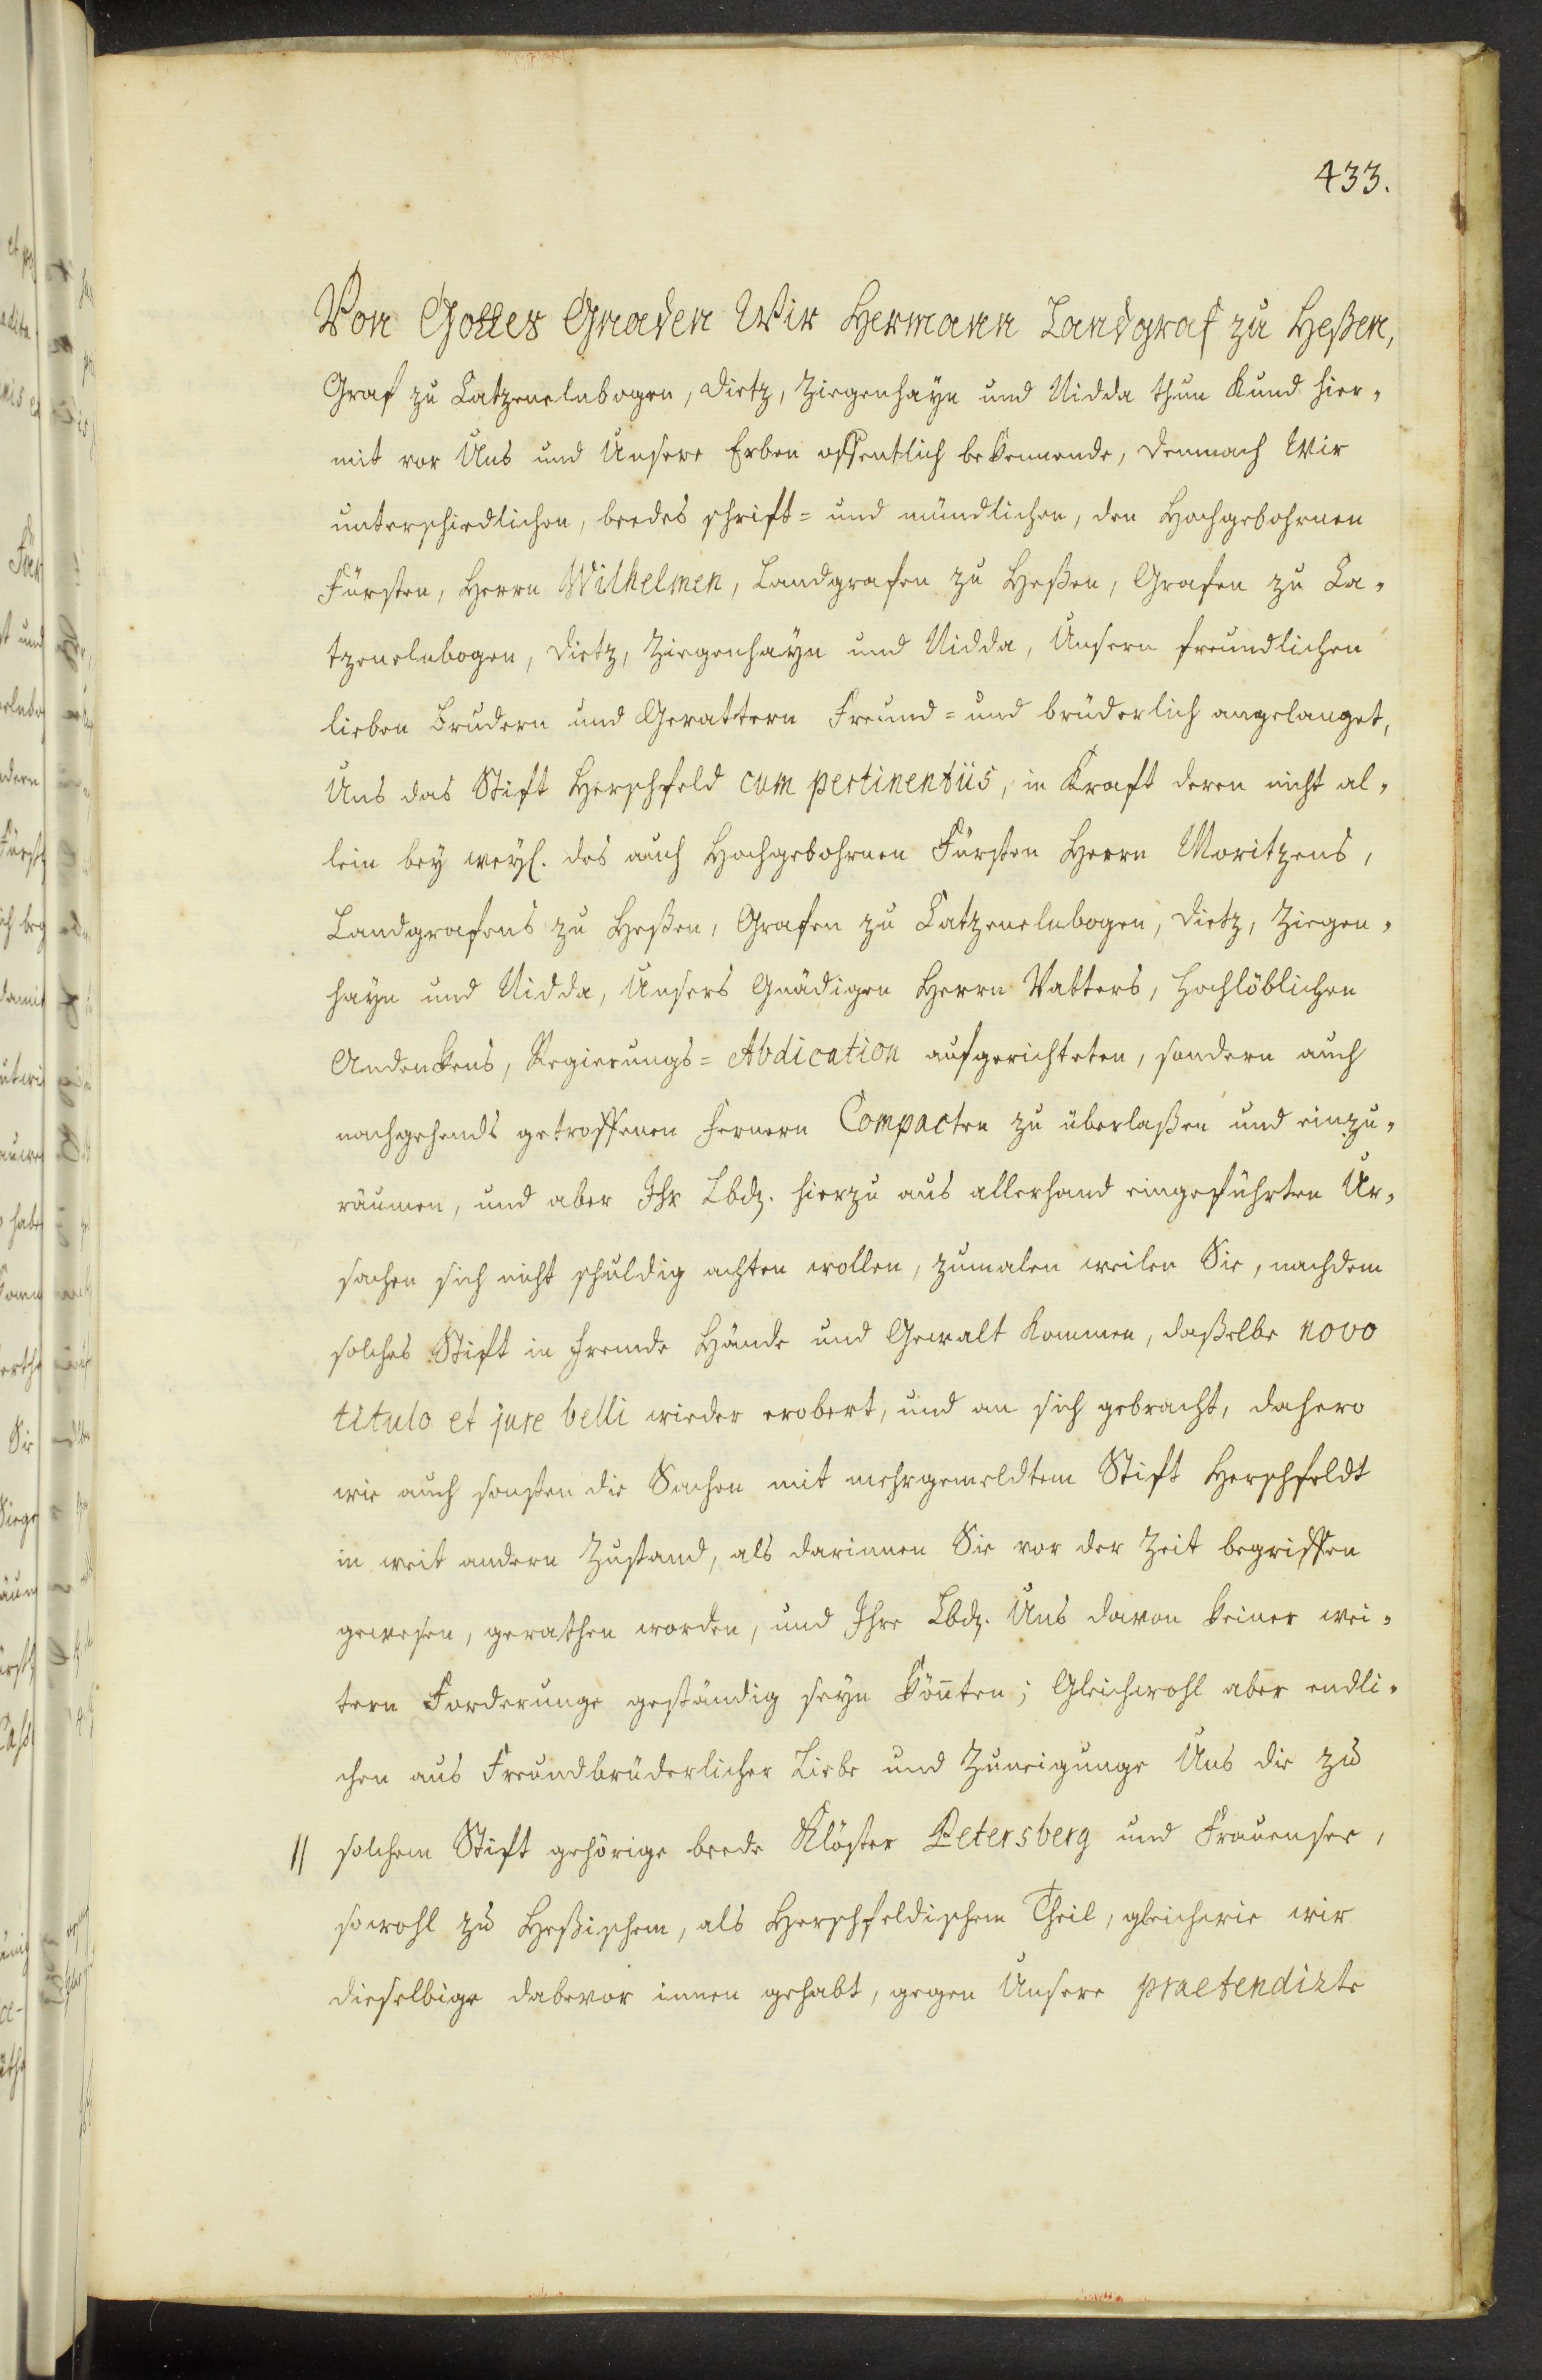 433.
Von Gottes Gnaden Wir Hermann Landgraf zu Heßen,
Graf zu Catzenelnbogen, Dietz, Ziegenhayn und Nidda thun Kund hier-
mit vor Uns und Unsere Erben offentlich bekennende, demnach Wir
unterschiedlichen, beedes schrift- und mündlichen, den Hochgebohrnen
Fürsten, Herrn Wilhelmen, Landgrafen zu Heßen, Grafen zu Ca-
tzenelnbogen, Dietz, Ziegenhayn und Nidda, Unsern freundlichen
lieben Brudern und Gevattern Freund- und brüderlich angelanget,
Uns das Stift Herschfeld cum pertinentiis, in Kraft deren nicht al-
lein bey weyl. des auch Hochgebohrnen Fürsten Herrn Moritzens,
Landgrafens zu Heßen, Grafen zu Catzenelnbogen, Dietz, Ziegen-
hayn und Nidda, Unsers Gnädigen Herrn Vatters, Hochlöblichen
Andenkens, Regierungs- Abdication aufgerichteten, sondern auch
nachgehends getroffenen fernern Compacten zu überlaßen und einzu-
räumen, und aber Ihr Lbdz. hierzu aus allerhand eingeführten Ur-
sachen sich nicht schuldig achten wollen, zumalen weilen Sie, nachdem
solches Stift in fremde Hände und Gewalt kommen, daßelbe novo
titulo et jure belli wieder erobert, und an sich gebracht, dahero
wie auch sonsten die Sachen mit mehrgemeldtem Stift Herschfeldt
in weit andern Zustand, als darinnen Sie vor der Zeit begriffen
gewesen, gerathen worden, und Ihre Lbdz. Uns davon keiner wei-
tern Forderunge geständig seyn kön̄ten; Gleichwohl aber endli-
chen aus Freundbrüderlicher Liebe und Zuneigunge Uns die zu
// solchem Stift gehörige beede Klöster Petersberg und Frauensee,
sowohl zu Heßischem, als Herschfeldischem Theil, gleichwie wir
dieselbige dabevor innen gehabt, gegen Unsere praetendirte